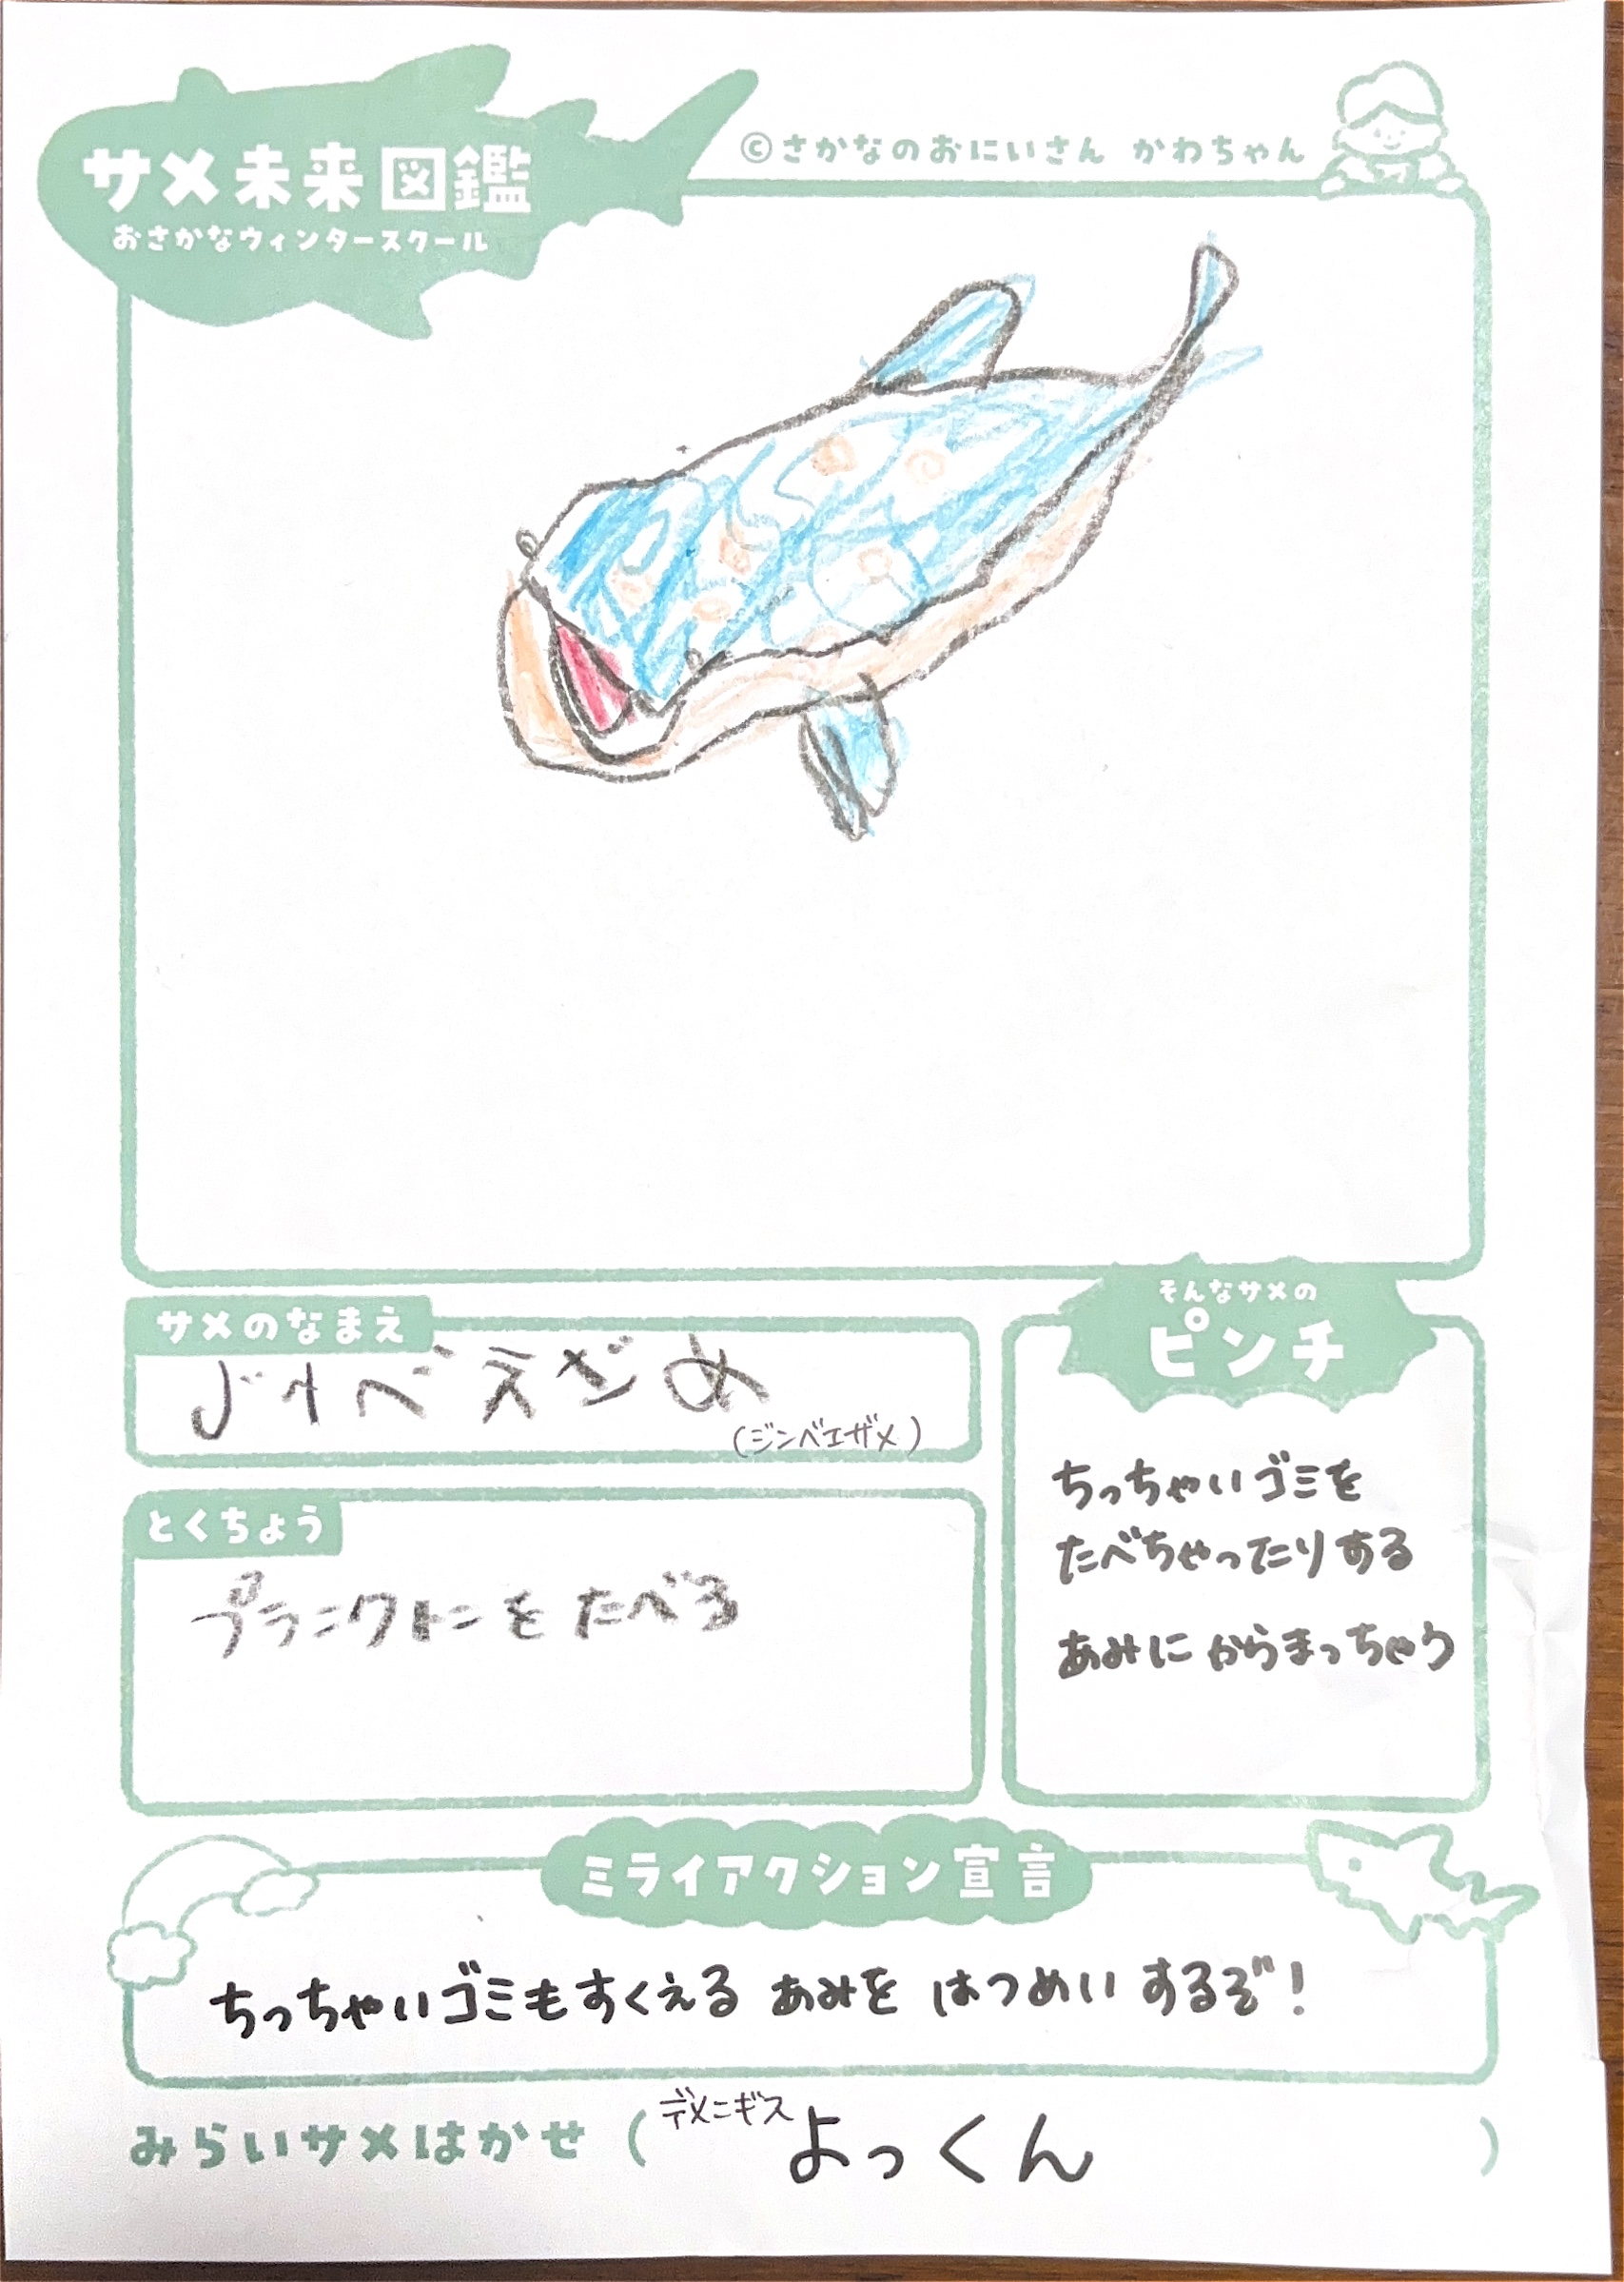 サメ未来図鑑
おさかなウィンタースクール
©さかなのおにいさん かわちゃん
サメのなまえ
じんべえざめ
(ジンベエザメ)
とくちょう
プランクトンをたべる
そんなサメの
ピンチ
ちっちゃいゴミを
たべちゃったりする
あみにからまっちゃう
ミライアクション宣言
ちっちゃいゴミもすくえる あみを はつめい するぞ!
みらいサメはかせ(デメニギス よっくん)